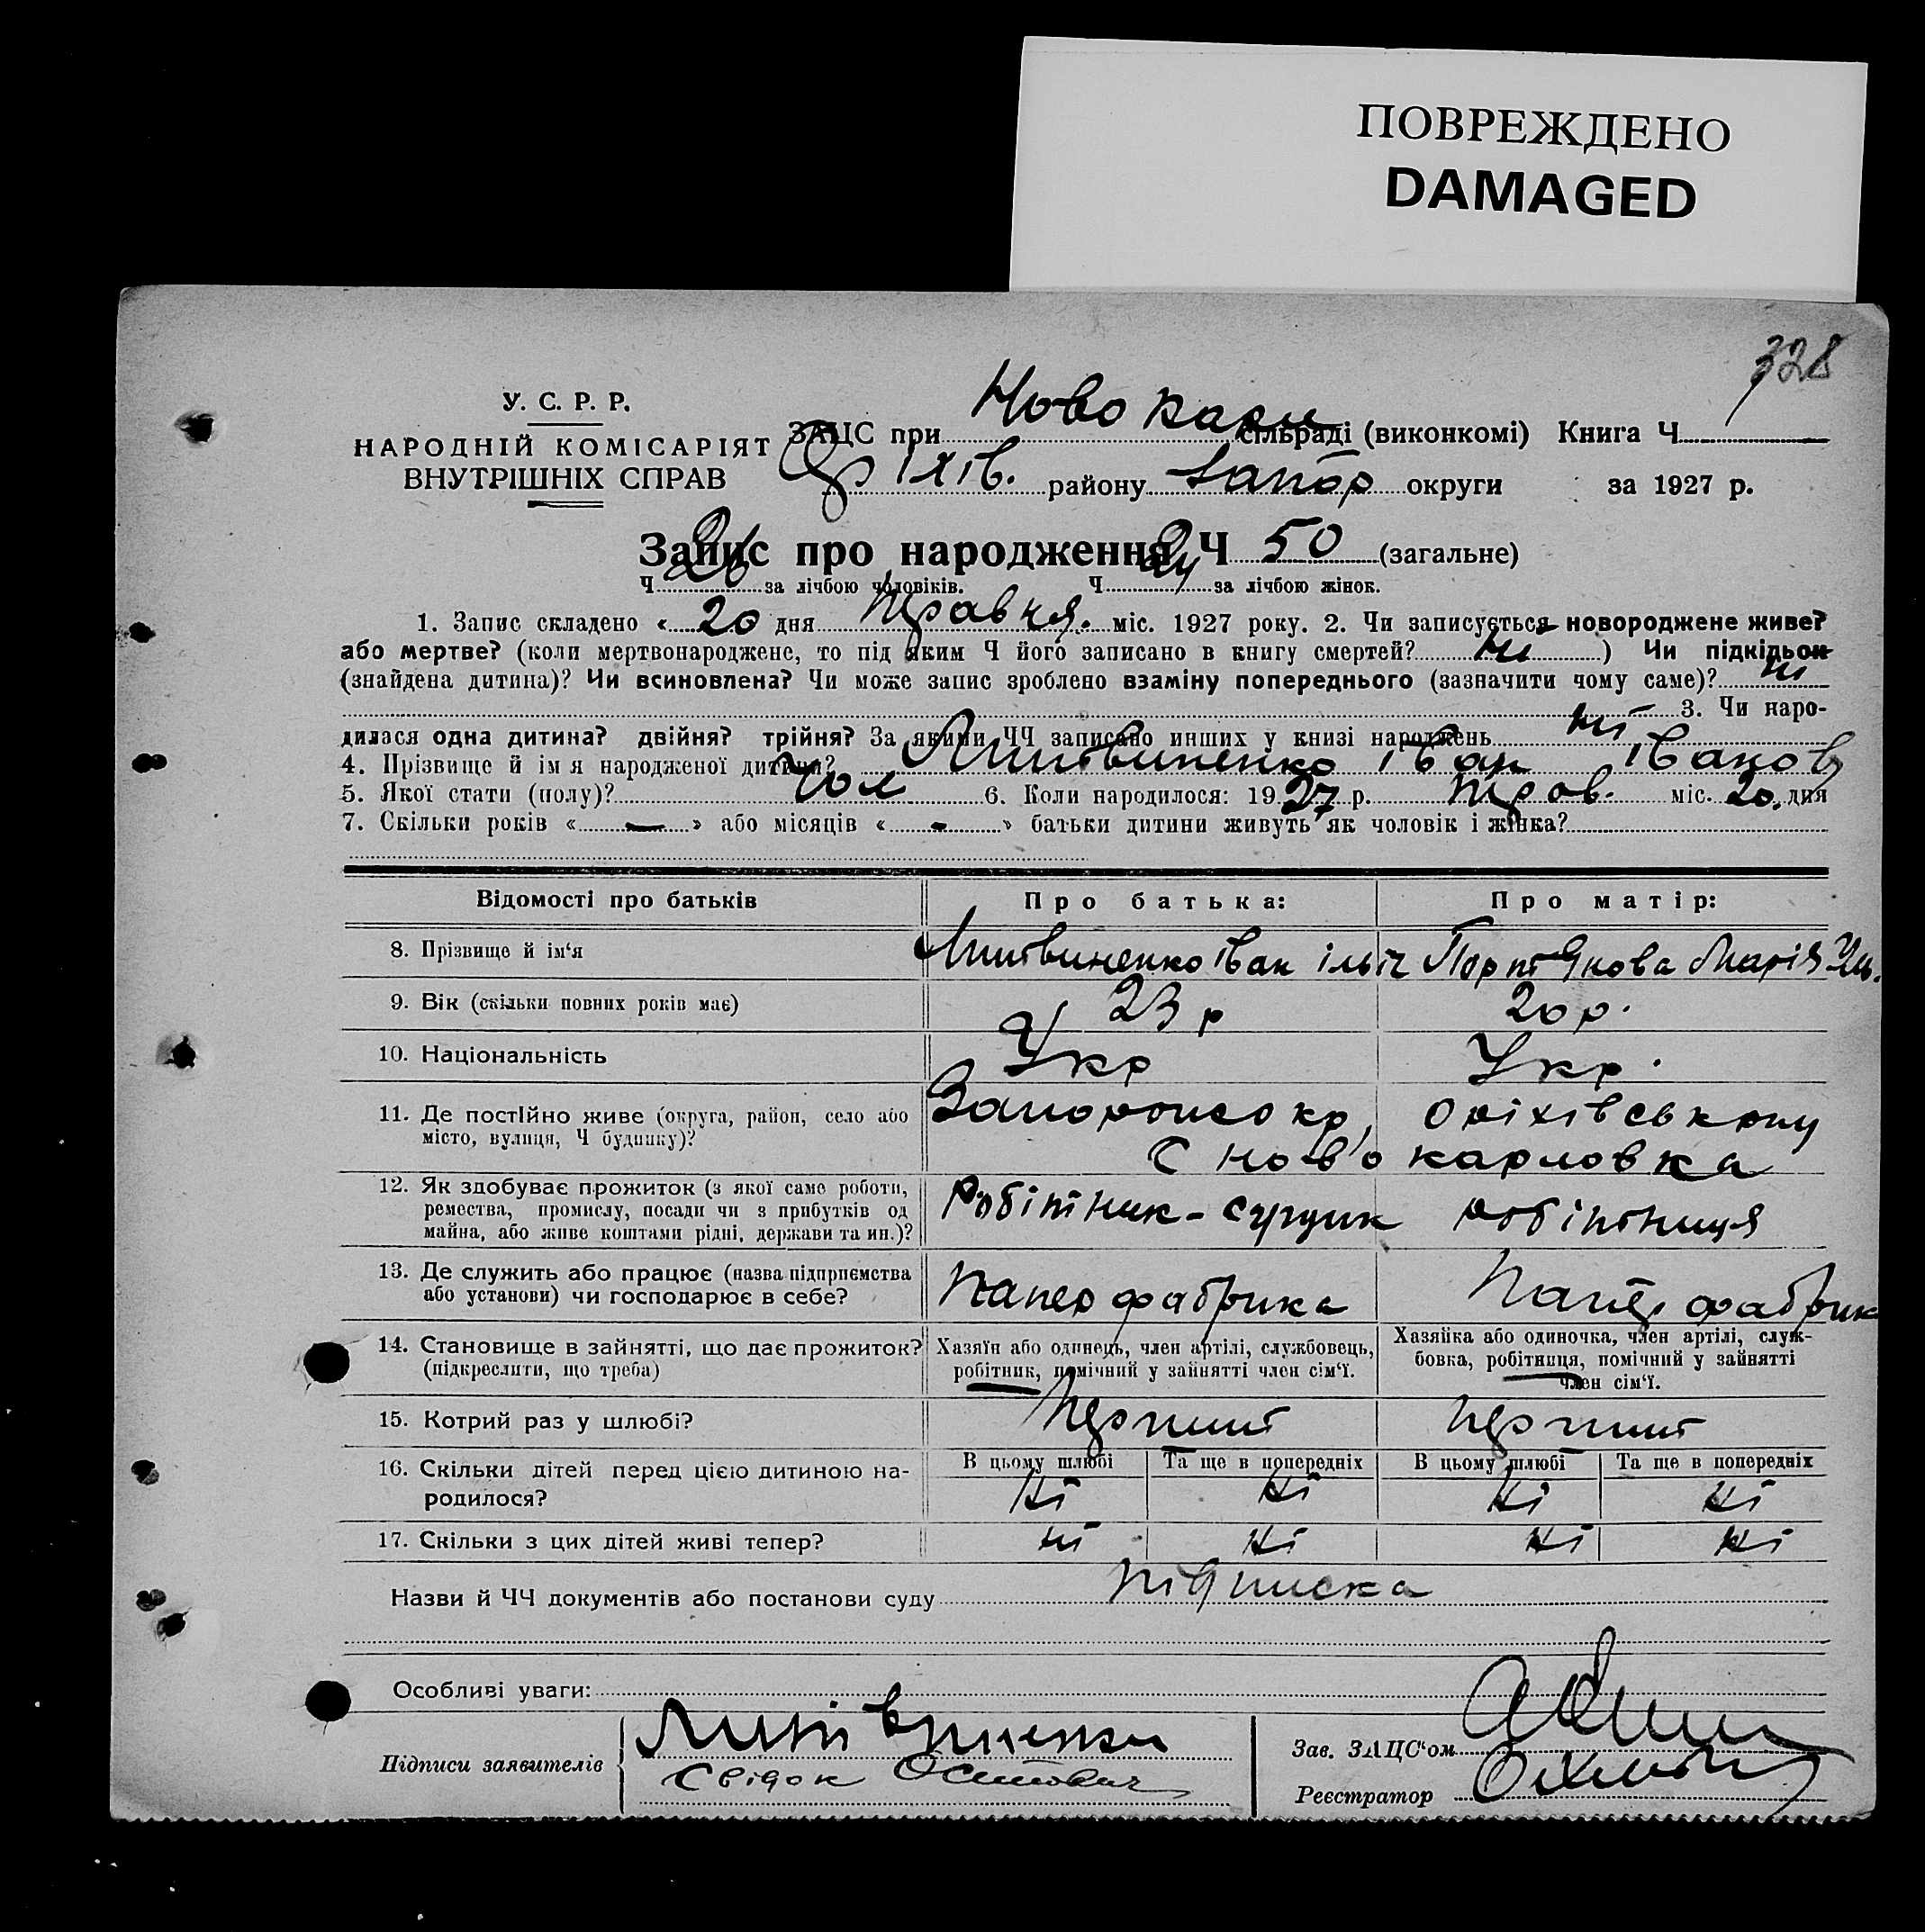 ПОВРЕЖДЕНО
DAMAGED
328
У. С. Р. Р.
НАРОДНІЙ КОМІСАРІЯТ
ВНУТРІШНІХ СПРАВ
ЗАЦС при Ново карл сільраді (виконкомі) Книга Ч
Оріхів. району Запор округи за 1927 р.
Запис про народження Ч 50 (загальне)
Ч 26 за лічбою чоловіків. Ч 24 за лічбою жінок.
1. Запис складено « 20 дня травня. міс. 1927 року. 2. Чи записується новороджене живе?
або мертве? (коли мертвонароджене, то під яким Ч його записано в книгу смертей? ні ) Чи підкідьок
(знайдена дитина)? Чи всиновлена? Чи може запис зроблено взаміну попереднього (зазначити чому саме)? ні
3. Чи наро-
дилася одна дитина? двійня? трійня? За якими ЧЧ записано инших у книзі народжень ні
4. Прізвище й імя народженої дитини? Литвиненко Іван Іванов
5. Якої стати (полу)? Чол 6. Коли народилося: 1927 р. трав. міс. 20. дня
7. Скільки років « — » або місяців « - » батьки дитини живуть як чоловік і жінка?
Відомості про батьків Про батька: Про матір:
8. Прізвище й ім'я Литвиненко Іван Ільіч Портянкова Марія
9. Вік (скільки повних років має) 23 р 20 р.
10. Національність Укр Укр.
11. Де постійно живе (округа, район, село або Запорожс окр, Оріхівськону
місто, вулиця, Ч будинку)? С Ново карловка
12. Як здобуває прожиток (з якої саме роботи,
ремества, промислу, посади чи з прибутків од Робітник - робітниця
майна, або живе коштами рідні, держави та ин.)?
13. Де служить або працює (назва підприємства
або установи) чи господарює в себе? Папер фабрика Папер фабрика
14. Становище в зайнятті, що дає прожиток? Хазяїн або одинець, член артілі, службовець, Хазяйка або одиночка, член артілі, служ-
(підкреслити, що треба) робітник, помічний у зайнятті член сім'ї. бовка, робітниця, помічний у зайнятті
член сім'ї.
15. Котрий раз у шлюбі? перший перший
16. Скільки дітей перед цією дитиною на- В цьому шлюбі Та ще в попередніх В цьому шлюбі Та ще в попередніх
родилося? ні ні ні ні
17. Скільки з цих дітей живі тепер? ні ні ні ні
Назви й ЧЧ документів або постанови суду підписка
Особливі уваги:
Підписи заявителів Литвиненко
Свідок Осипович
Зав. ЗАЦС'ом
Реєстратор